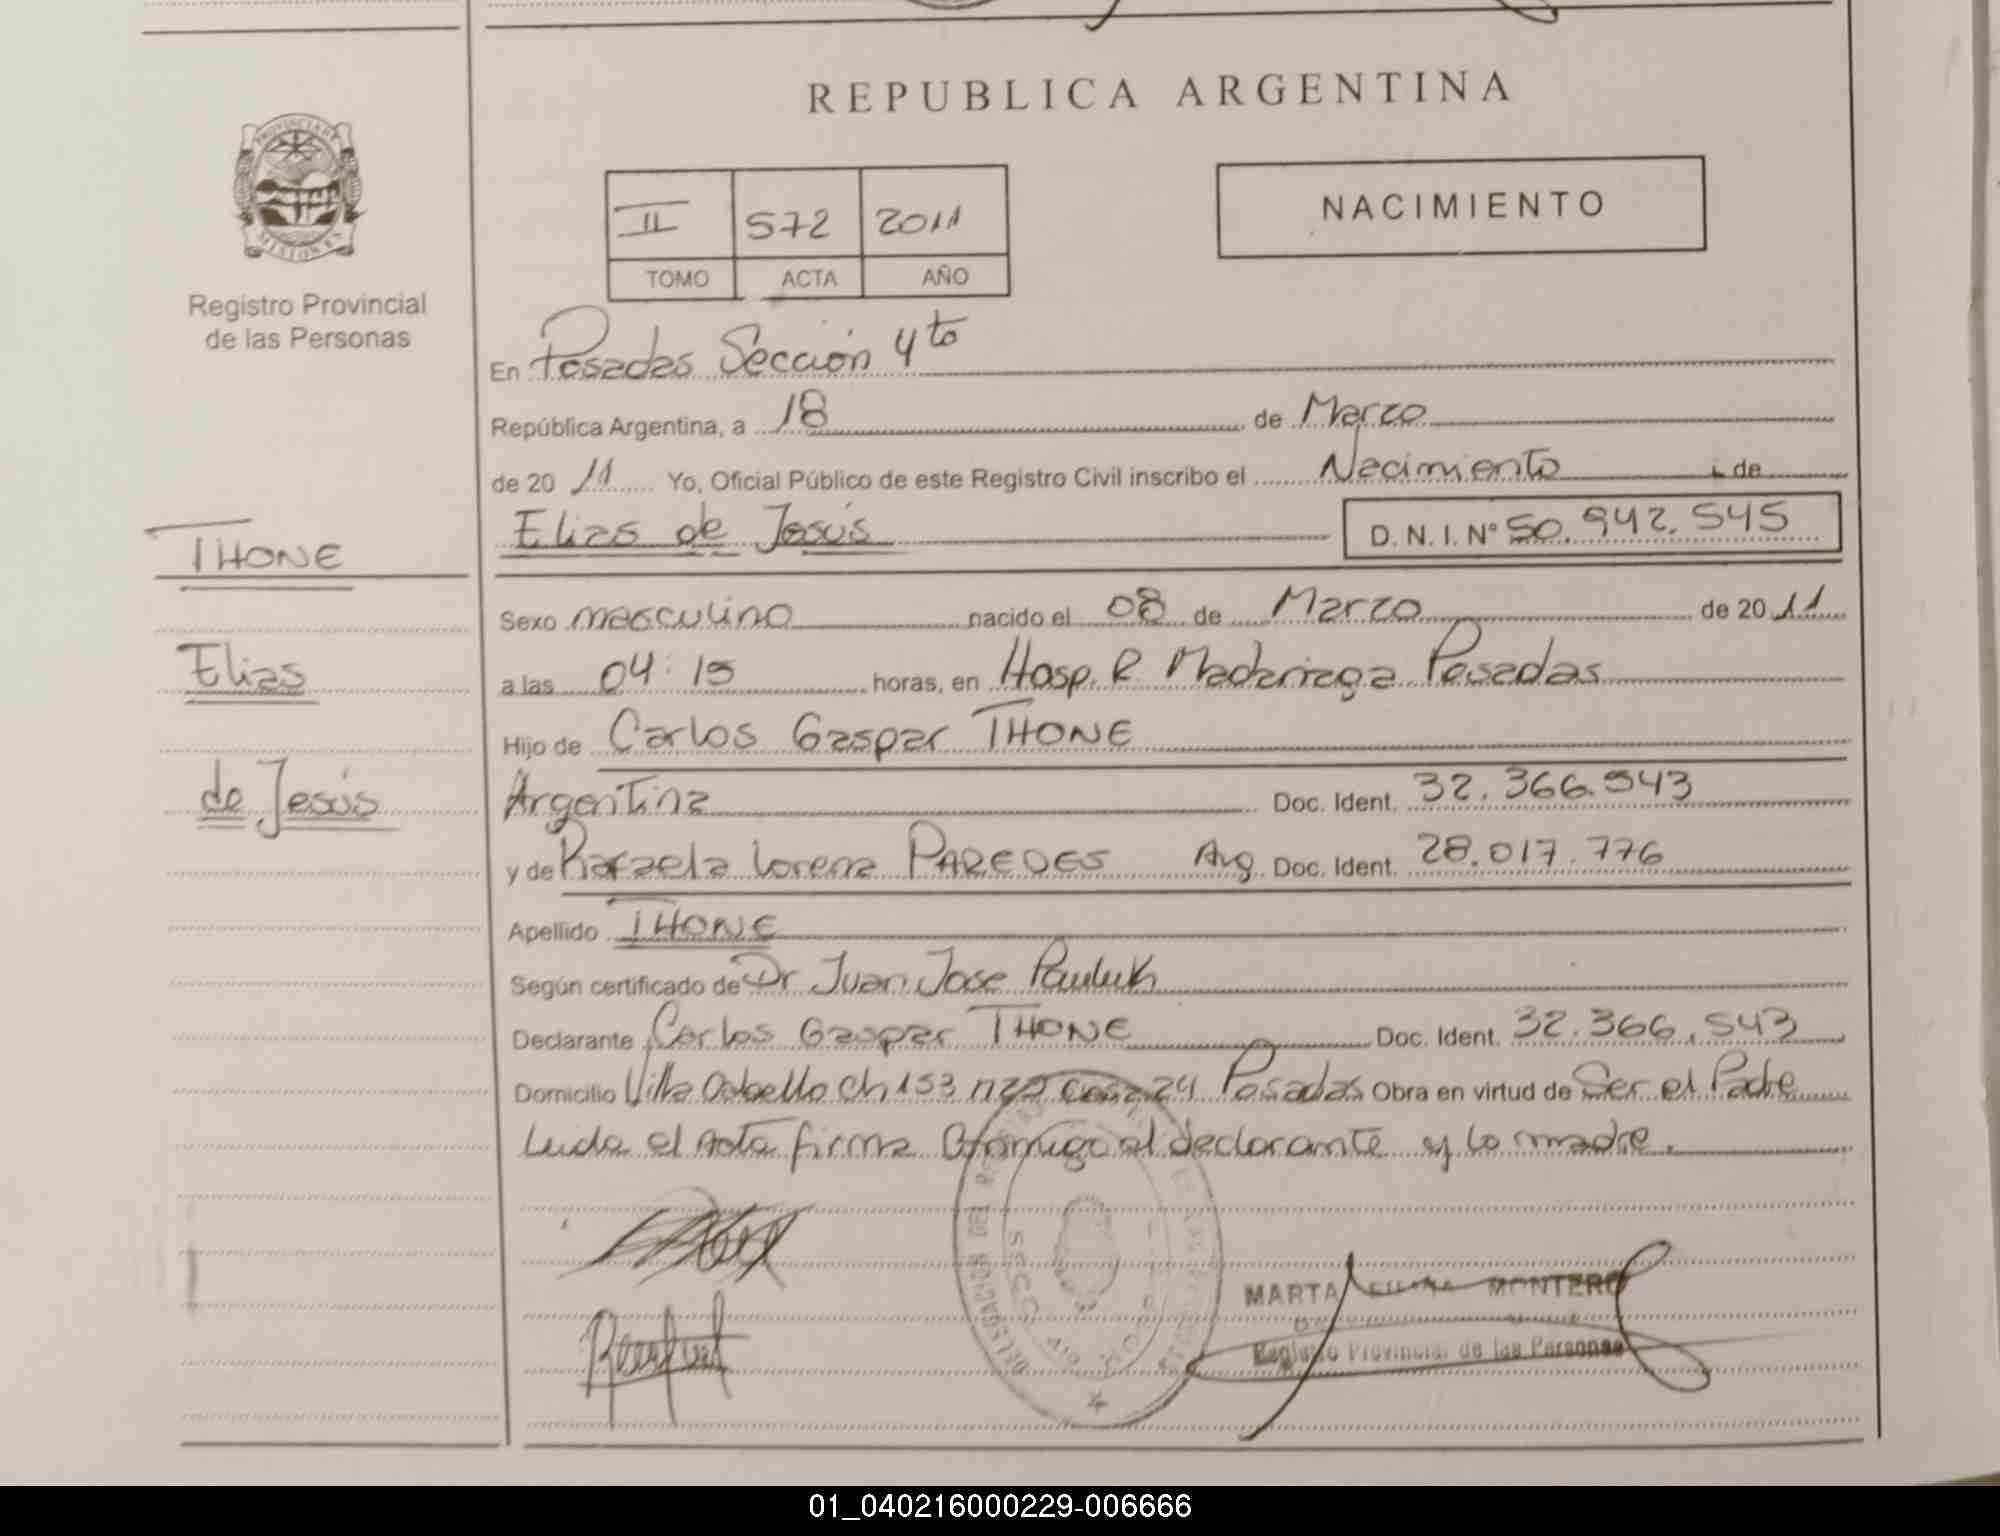 REPUBLICA ARGENTINA
PROVINCIA DE
MISIONES
Registro Provincial
de las Personas
II 572 2011
TOMO ACTA AÑO
NACIMIENTO
En Posadas Sección 4to
República Argentina, a 18 de Marzo
de 20 11 Yo, Oficial Público de este Registro Civil inscribo el Nacimiento de
Elias de Jesús D. N. I. N° 50.942.545
THONE
Elias
de Jesús
Sexo masculino nacido el 08 de Marzo de 20 11
a las 04:15 horas, en Hosp. R. Madariaga Posadas
Hijo de Carlos Gaspar THONE
Argentina Doc. Ident. 32.366.543
y de Rafaela Lorena PAREDES Arg. Doc. Ident. 28.017.776
Apellido THONE
Según certificado de Dr Juan Jose Pauluk
Declarante Carlos Gaspar THONE Doc. Ident. 32.366.543
Domicilio Villa Ch 153 casa 24 Posadas Obra en virtud de Ser el Padre
Leida el Acta firma Conmigo el declarante y la madre.
MARTA MONTERO
Registro Provincial de las Personas
01_040216000229-006666